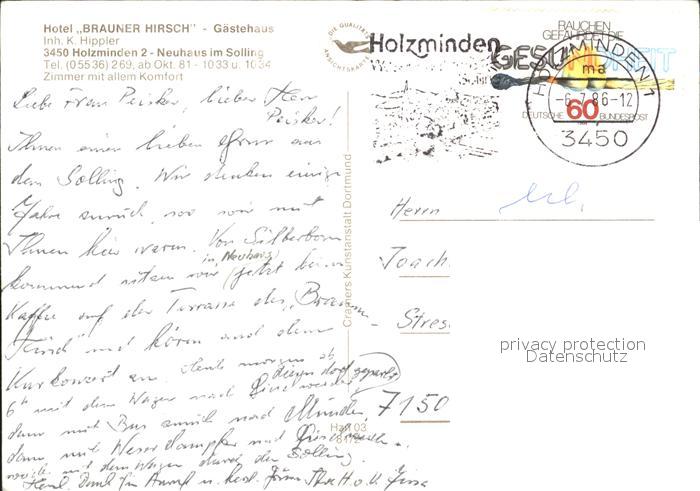 Hotel „BRAUNER HIRSCH" - Gästehaus
Inh. K. Hippler
3450 Holzminden 2 - Neuhaus im Solling
Tel. (05536) 269, ab Okt. 81 - 1033 u. 1034
Zimmer mit allem Komfort
DIE QUALITÄTS
ANSICHTSKARTE
Holzminden
RAUCHEN
GEFÄHRDET DIE
GESUNDHEIT
HOLZMINDEN 1
ma
-6.7.86-12
60
DEUTSCHE BUNDESPOST
3450
Liebe Frau Peisker, lieber Herr
Peisker!
Ihnen einen lieben Gruß aus
dem Solling. Wir denken einige
Jahre zurück, wo wir mit
Ihnen hier waren. Von Silberborn
in Neuhaus
kommend sitzen wir jetzt beim
Kaffee auf der Terrasse des „Braunen
und hören
Kurkonzert an. Heute morgen ab
6 mit dem Wagen nach
dann mit Bus zurück nach Münden,
dann mit Weserdampfer nach
mit dem Wagen durch den Solling.
Herzl. Dank für Anruf u. herzl. Grüße Ihre H. o. U.
Cramers Kunstanstalt Dortmund
Herrn
Joach
Stres
7150
Han 03
privacy protection
Datenschutz